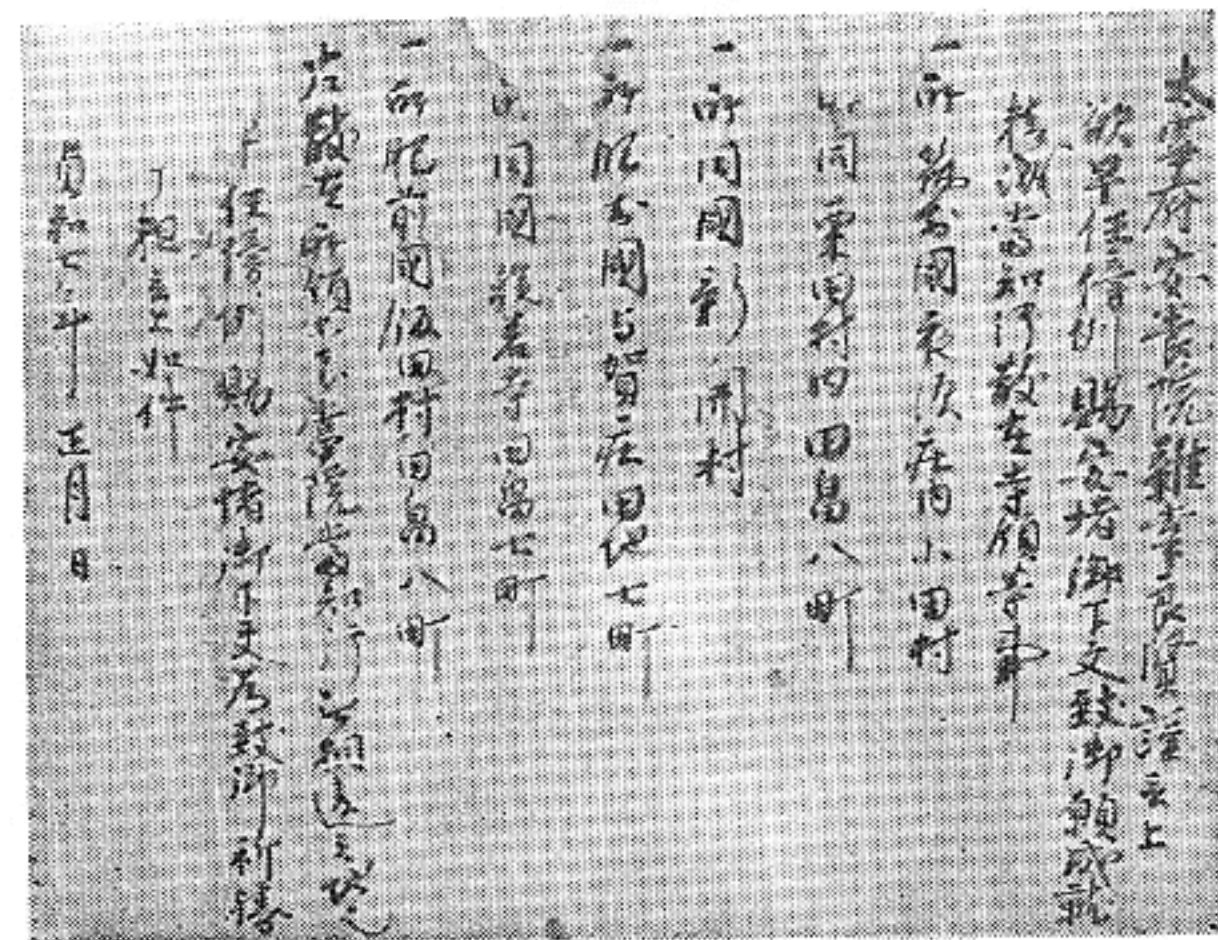 太宰府安楽院雑掌良賢謹言上
欲早任傍例賜安堵御下文致御願成就
祈禱当知行散在寺領等事
一所 筑前國長淵庄内小田村
一所同 栗田村内田畠八町
一所同國新開村
一所肥前國与賀庄田地七町
一所同國 田畠七町
一所肥前國飯田村田畠八町
右散在所領者当院当知行無相違之地也
任傍例賜安堵御下文為致御祈禱
言上如件
貞和七年正月 日